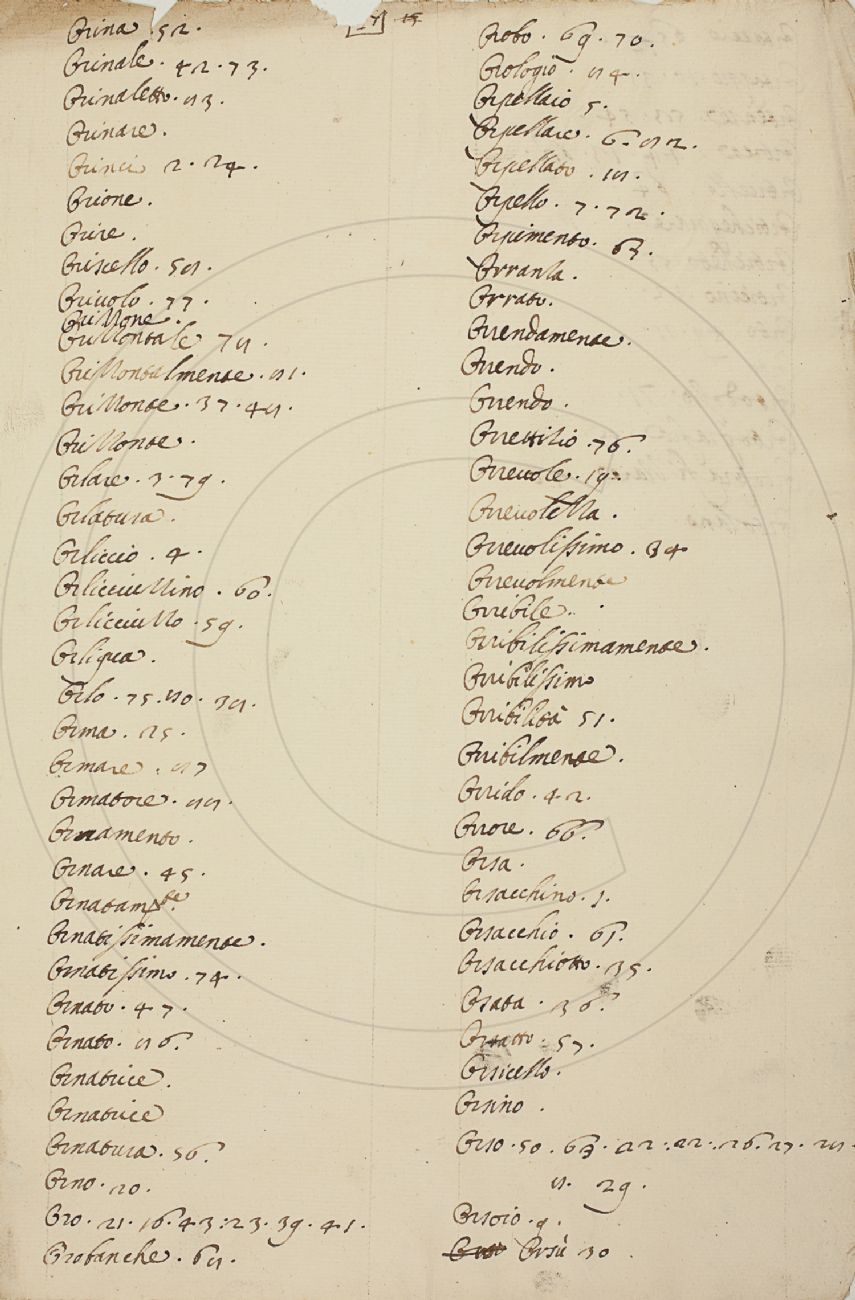 Orina 52.
Orinale. 42.73.
Orinaletto. 83.
Orinare.
Orinci 2. 24.
Orione.
Orire.
Oriscello. 58.
Oriuolo. 77.
Orizzone.
Orizzontale 78.
Orizzontalmente. 81.
Orizzonte. 37. 48.
Orizzonte.
Orlare. 3. 79.
Orlatura.
Orliccio. 4.
Orlicciuzzino. 60.
Orlicciuzzo. 59.
Orliqua.
Orlo. 75. 80. 38.
Orma. 25.
Ormare. 87
Ormatore. 88.
Ornamento.
Ornare. 45.
Ornatam.te
Ornatissimamente.
Ornatissimo. 74.
Ornato. 47.
Ornato. 86.
Ornatrice.
Ornatrice
Ornatura. 56.
Orno. 20.
Oro. 21. 16. 43. 23. 39. 41.
Orobanche. 68.
Orobo. 69. 70.
Orologio. 84.
Orpellaio 5.
Orpellare. 6. 82.
Orpellato. 18.
Orpello. 7. 72.
Orpimento. 63.
Orranza.
Orrato.
Orrendamente.
Orrendo.
Orrendo.
Orrettizio. 76.
Orrevole. 19.
Orrevolezza.
Orrevolissimo. 34
Orrevolmente
Orribile.
Orribilissimamente.
Orribilissimo
Orribilità 51.
Orribilmente.
Orrido. 42.
Orrore. 66.
Orsa.
Orsacchino. 1.
Orsacchio. 61.
Orsacchiotto. 35.
Orsata. 36.
Orsatto. 57.
Orsicello.
Orsino.
Orso. 50. 63. 22. 22. 26. 27. 28.
8. 29.
Orsoio. 9.
Orsù 30